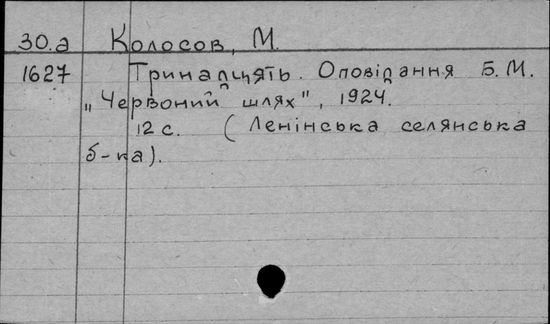 30.а Колосов, М.
1627 Тринадцять. Оповідання Б. М.
„Червоний шлях", 1924.
12 с. (Ленінська селянська
б-ка).